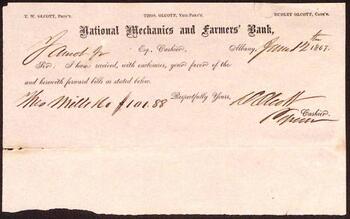 T. W. OLCOTT, Pres't. THOS. OLCOTT, Vice Pres't. DUDLEY OLCOTT, Cash'r.
National Mechanics and Farmers' Bank,
Esq. Cashier, Albany, June 12th 1867.
Sir: I have received, with enclosures, your favor of the
and herewith forward bills as stated below.
Respectfully Yours,
Thos Mills &c $101.88
D Olcott
Cashier.